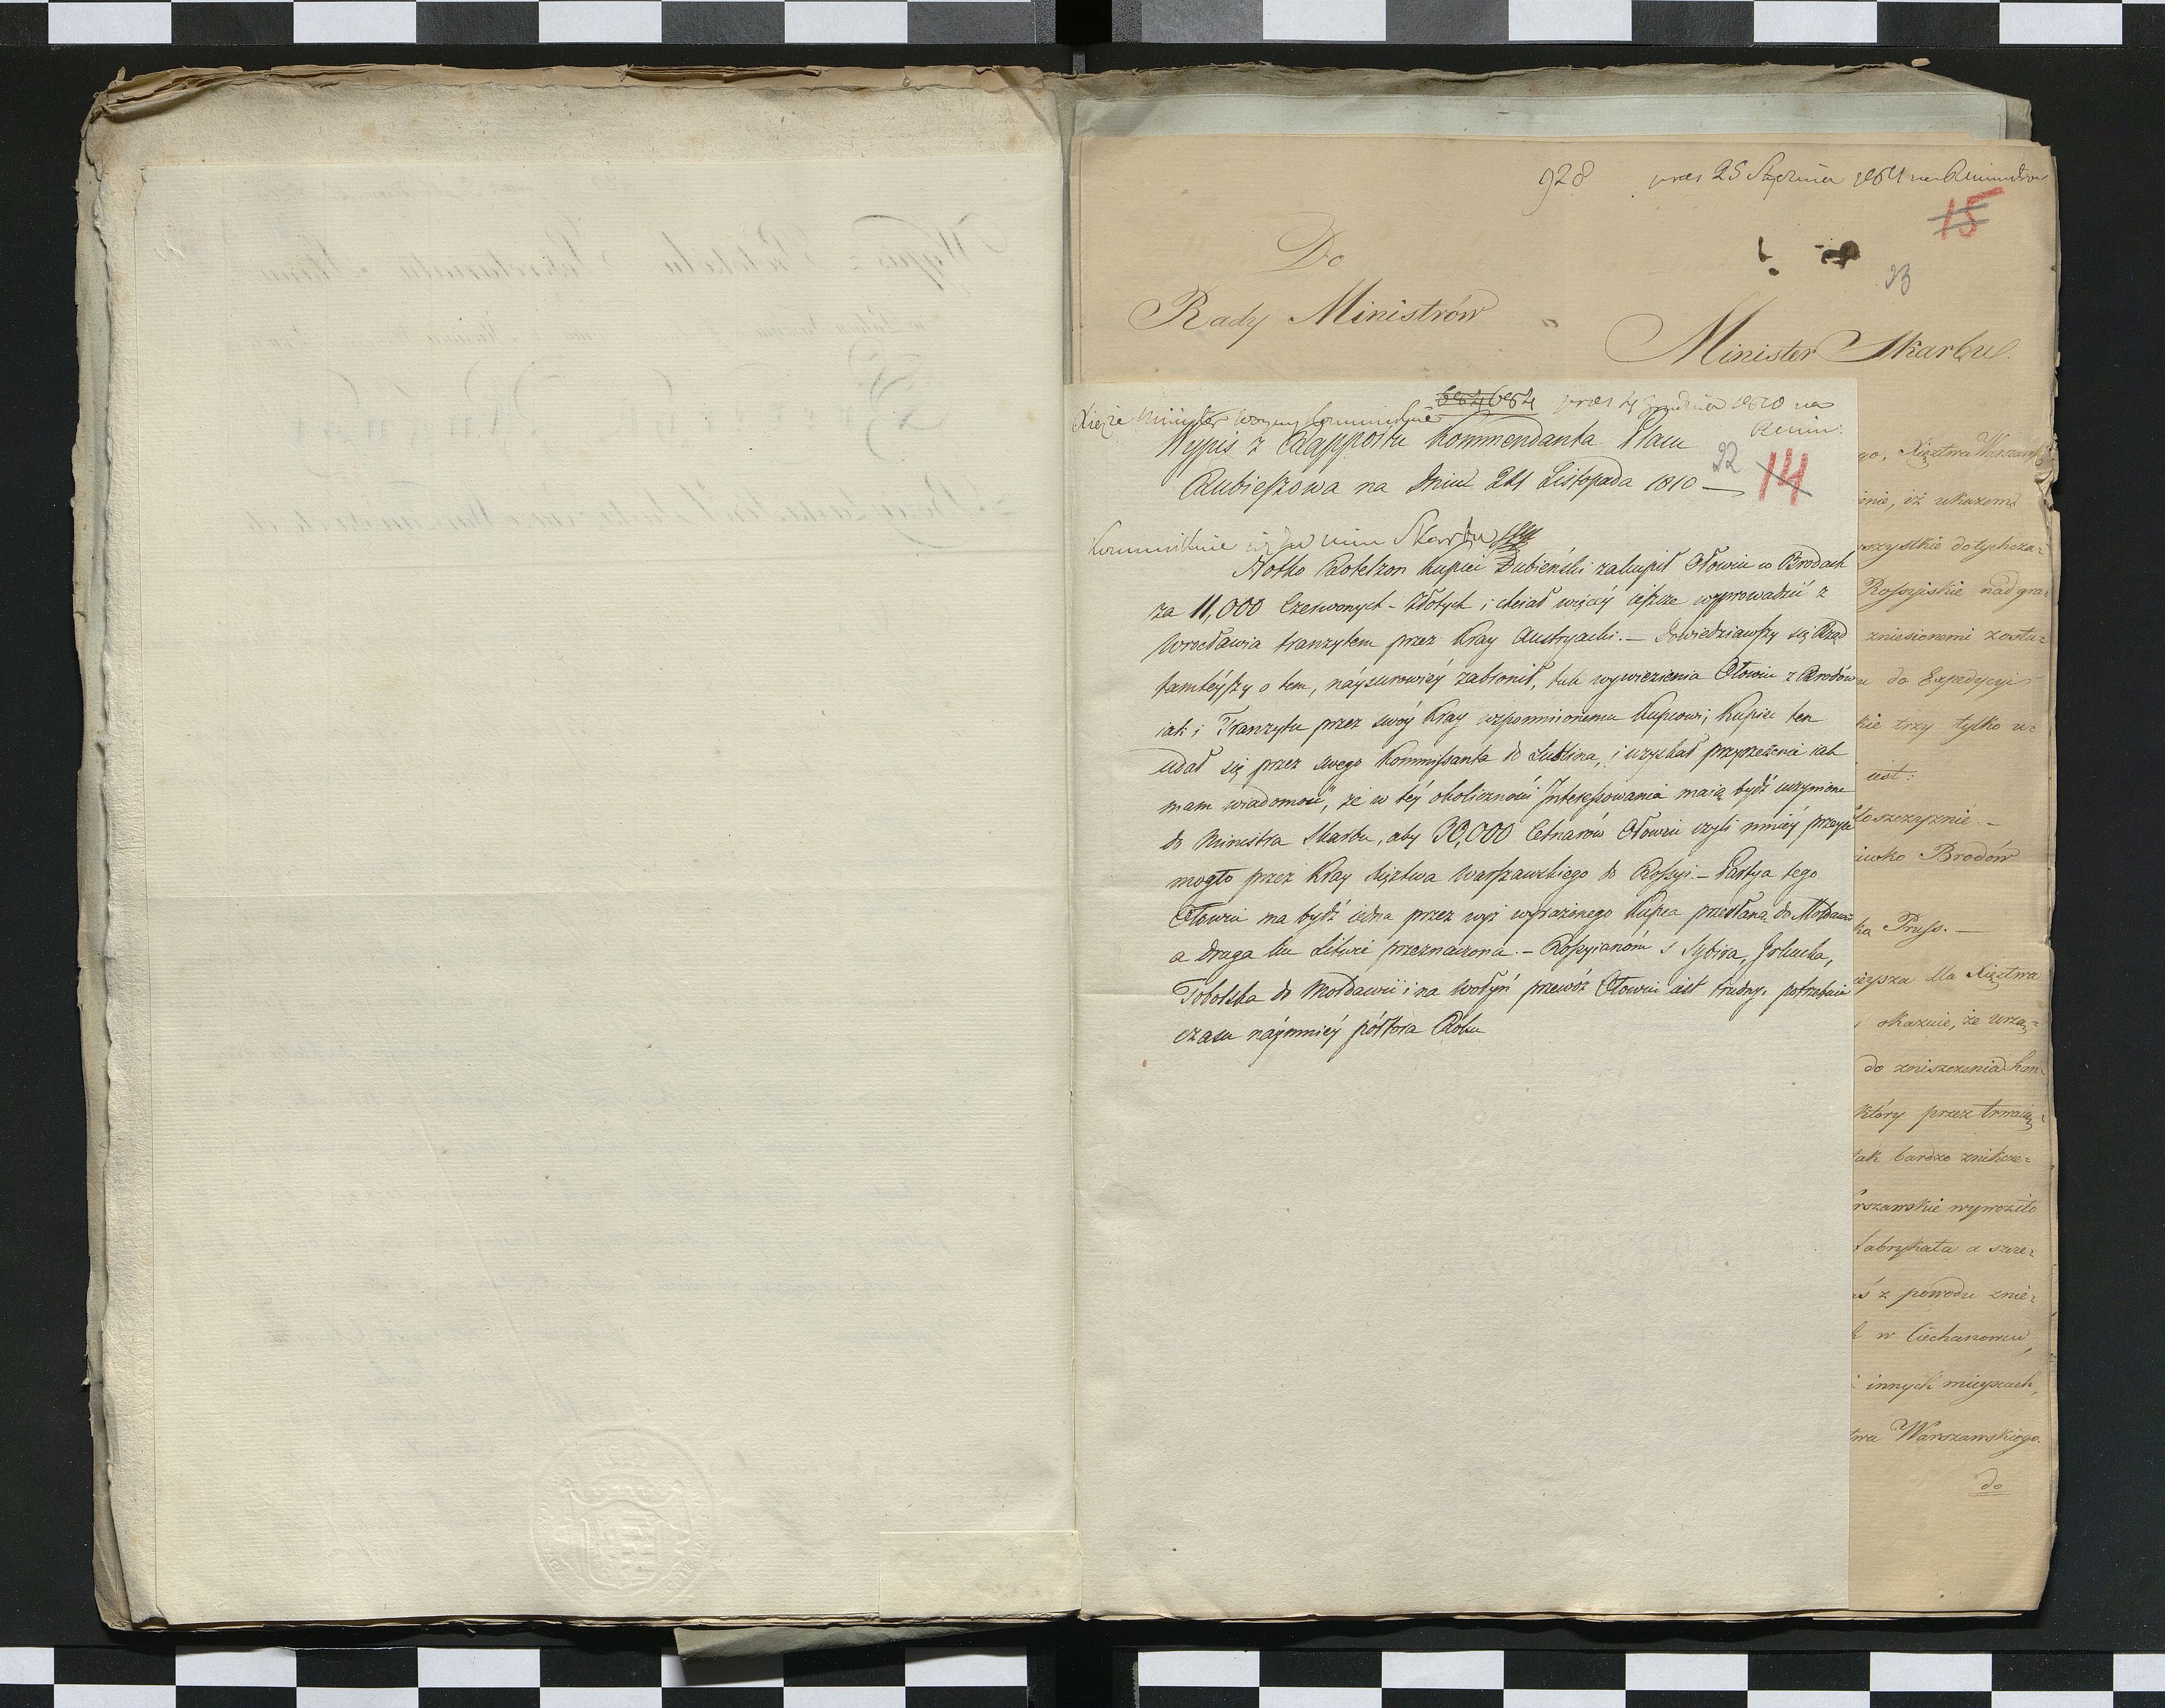 928 pres 25 Stycznia 1811 na Ministrów
15
23
Do
Rady Ministrów
Minister Skarbu.
pres 4 Grudnia 1810 na
Xiąże Minister Woyny
Wypis z Rapportu Kommendanta Placu
Rubieszowa na dniu 24 Listopada 1810 —
22
14
Kommunikuie się JW Min Skarbu
Notko Rotelzon kupiec Dubieński zakupił Ołowiu w Brodach
za 11,000 Czerwonych-Złotych i chciał więcéy ieszcze wyprowadzić z
Wrocławia tranzytem przez Kray Austryacki. — Dowiedziawszy się Rząd
tamtéyszy o tem, náysurowiéy zabronił, tak wywiezienia Ołowiu z Brodów
iak i Tranzytu przez swóy Kray wspomnionemu kupcowi; kupiec ten
udał się przez swego Kommissanta do Lublina, i uzyskał przyrzeczenie iak
mam wiadomość, że w téy okoliczności Interessowania maią bydź uczynione
do Ministra Skarbu, aby 30,000 Cetnarów Ołowiu czyli mniéy przeyść
mogło przez Kray Xięztwa Warszawskiego do Rossyi. — Partya tego
Ołowiu ma bydź iedna przez wyż wyrażonego kupca przesłana do Mołdawii
a druga ku Litwie przeznaczona. — Rossyianom z Sybira, Irkucka,
Tobolska do Mołdawii i na Wołyń przewóz Ołowiu iest trudny, potrzebuie
czasu náymniéy półtora Roku
go, Xięztwa Warszaws
enie, iż ukazem
szystkie dotychcza-
Rossyiskie nad gra-
zniesionemi zosta-
do Expedycyi
kie trzy tylko u-
iest:
łoszczyznie. —
iwko Brodów
ka Pruss. —
ieysza dla Xięztwa
okazuie, że urzą-
do zniszczenia han-
który przez trwaią-
tak bardzo znikcze-
rszawskie wywoziło
fabrykata a szcze-
ś z powodu znie-
w Ciechanowcu,
i innych mieyscach,
twa Warszawskiego.
do